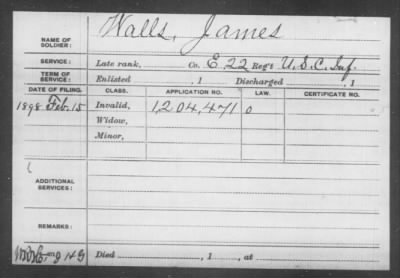 NAME OF SOLDIER: Walls, James
SERVICE: Late rank, Co. E, 22 Reg't U.S.C. Inf.
TERM OF SERVICE: Enlisted , 1 Discharged , 1
DATE OF FILING. CLASS. APPLICATION NO. LAW. CERTIFICATE NO.
1898 Feb. 15 Invalid, 1,204,471 0
Widow,
Minor,
ADDITIONAL SERVICES:
REMARKS:
Died , 1 , at